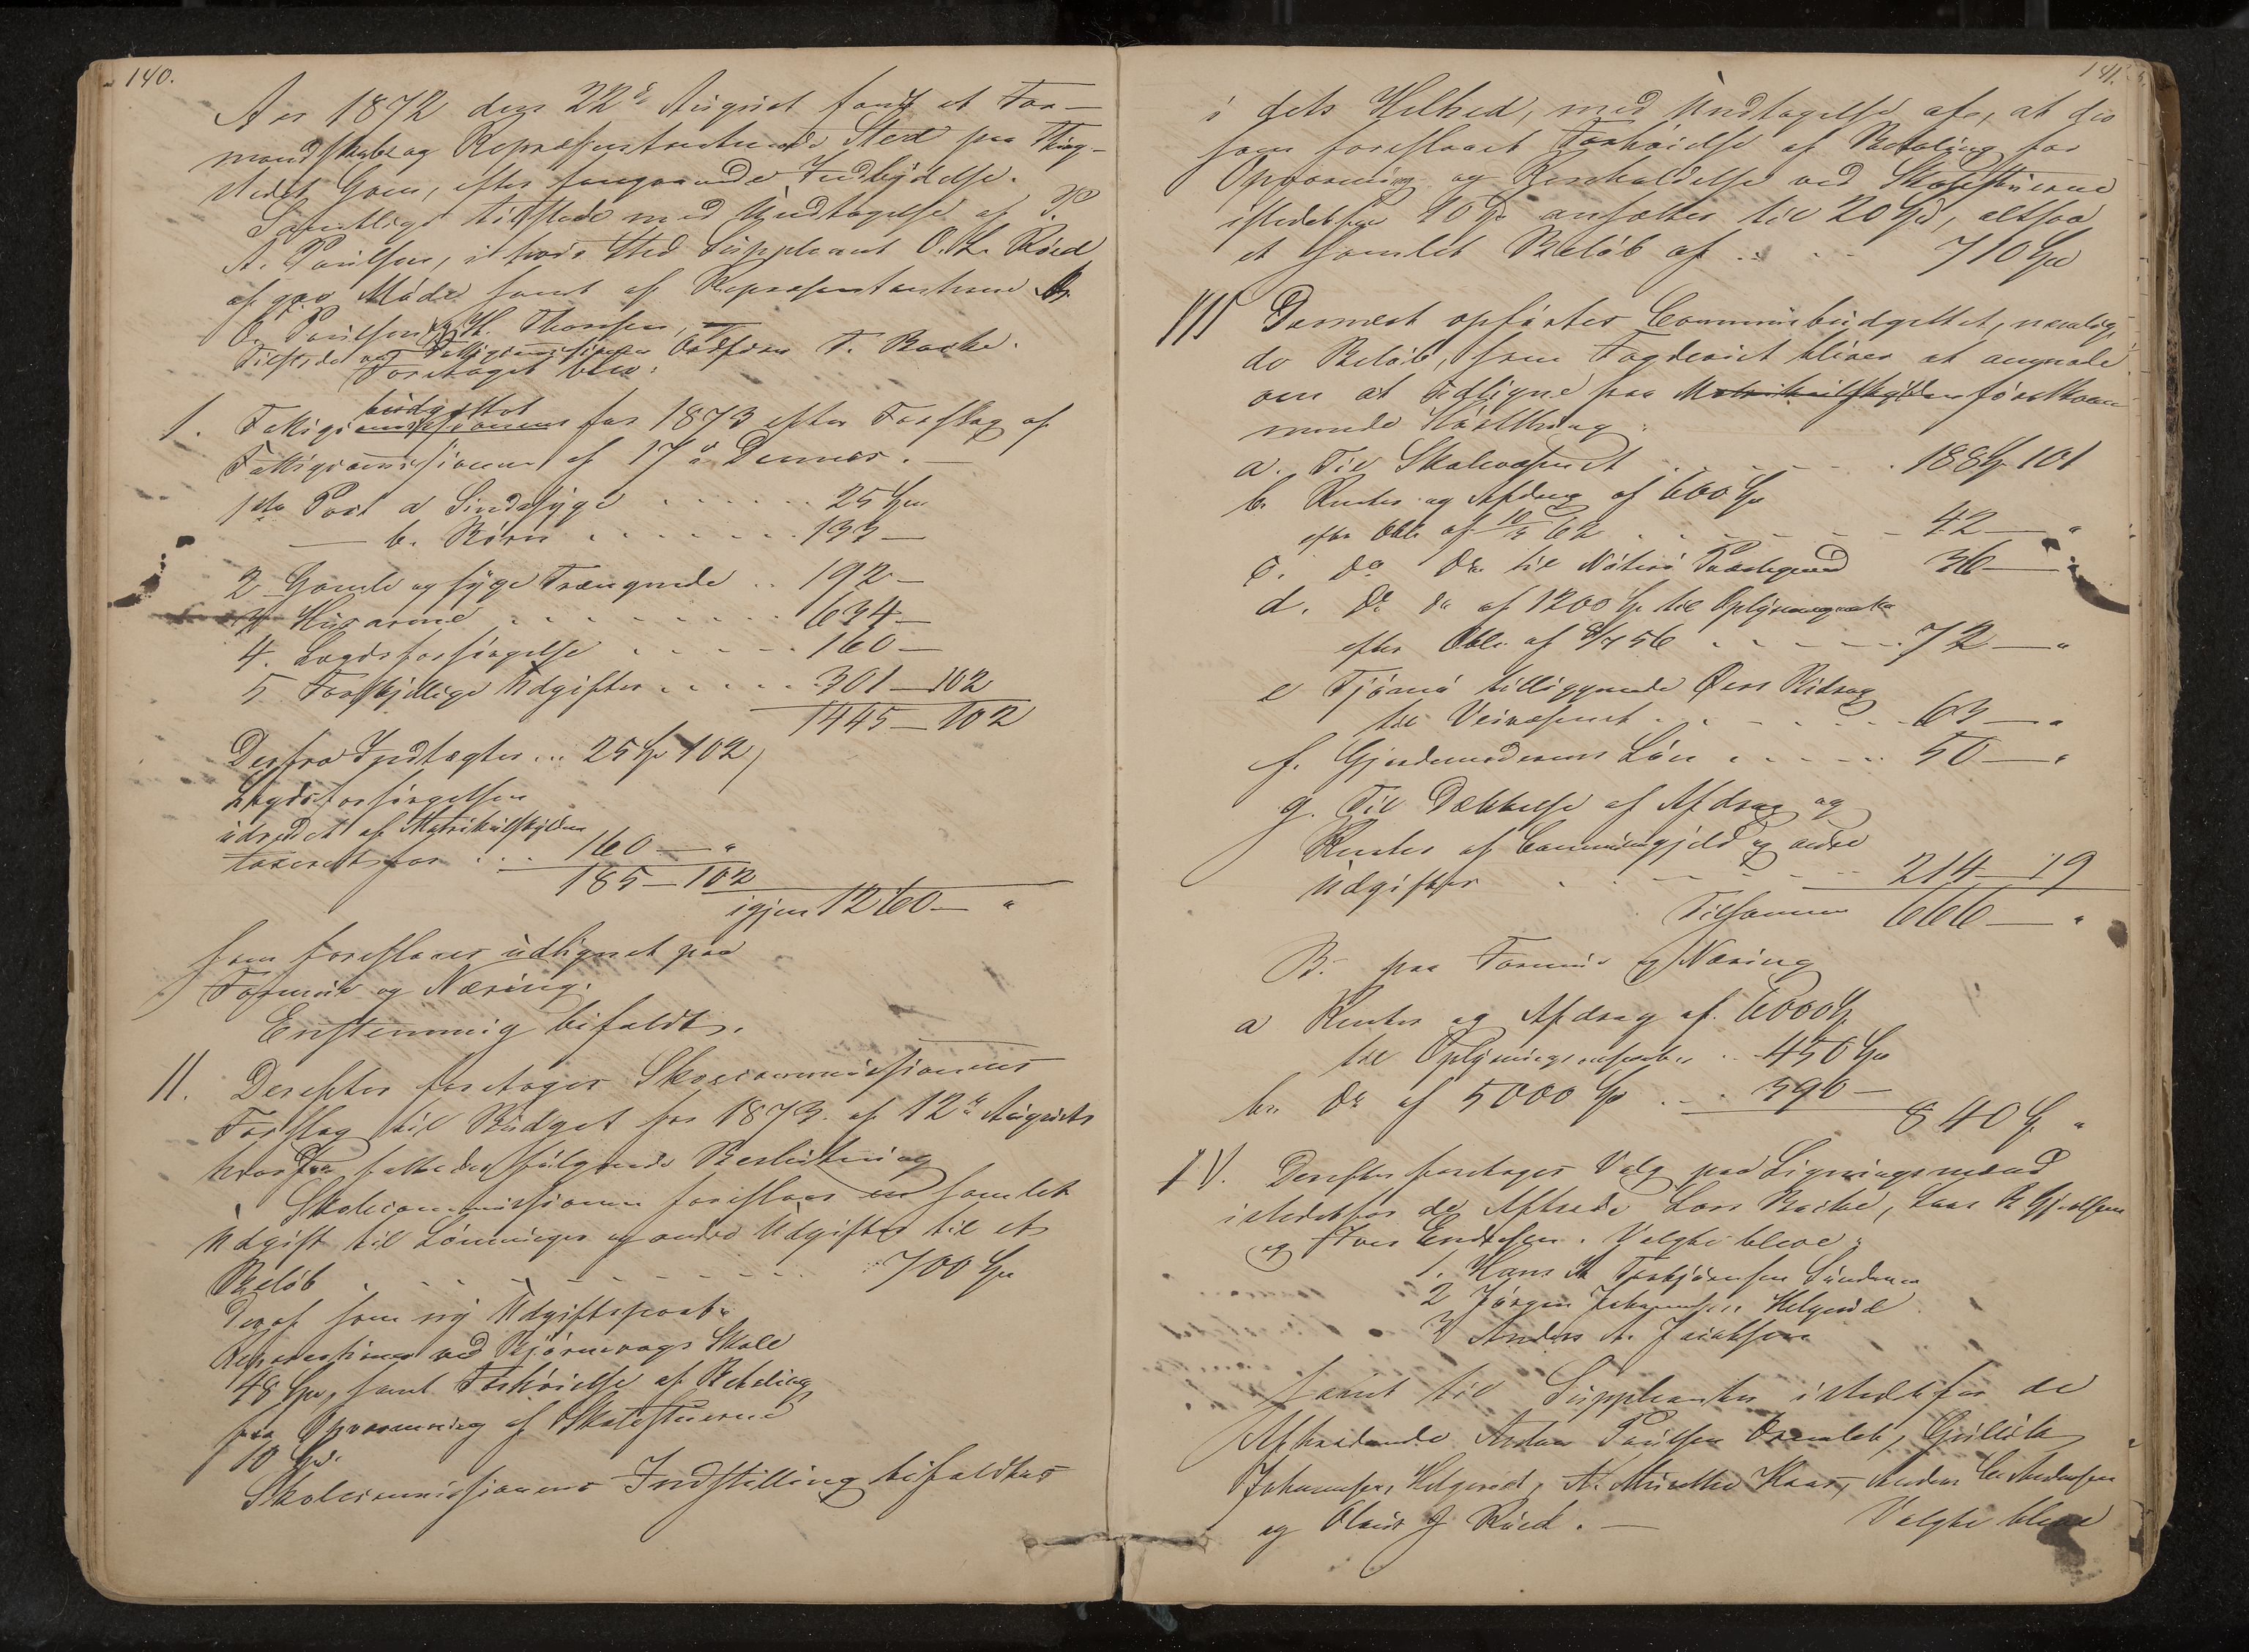 140.
Aar 1872 den 22de August fandt et For-
mandskabs og Repræsentantmøde Sted paa Thing-
stedet Gaen, efter foregaaende Indbydelse.
Samtlige tilstede med Undtagelse af P.
A. Paulsen, i hvis Sted Suppleant O. L. Ruud
af gav Møde samt af Repræsentanterne
O. Paulsen og H. Thorsen,
Tilstede var Fattigcommissionens Ordfører F. Backe.
Foretaget blev:
1. Fattigbudgettet for 1873 efter Forslag af
Fattigcommissionen af 17de Dennes. —
1ste Post a Sindssyge . . . . . . 25 Spd
— b. Børn . . . . . . . 133 —
2 Gamle og syge Trængende . . 192 —
3 Husarme . . . . . . . . 634 —
4. Lægdsforsørgelse . . . . . 160 —
5 Forskjellige Udgifter . . . . . 301 — 102
1445 — 102
Derfra Indtægter ... 25 Spd 102
Lægdsforsørgelsen
udredet af Matrikulskylden
taxeret for . . . 160 — "
185 — 102
igjen 1260 — "
som foreslaaes udlignet paa
Formue og Næring.
Enstemmig bifaldt.
II. Derefter foretages Skolecommissionens
Forslag til Budget for 1873 af 12te August
hvorfor fattedes følgende Beslutning
Skolecommissionen foreslaar en samlet
Udgift til Lønninger og andre Udgifter til et
Beløb . . . . . . . . . 700 Spd
deraf som ny Udgiftspost:
Reparationer ved Bjørnevaags Skole
48 Spd, samt Forhøielse af Betaling
for Opvarmning af Skolestuerne
10 Spd.
Skolecommissionens Indstilling bifaldtes
141.
i dets Helhed, med Undtagelse af, at den
som foreslaaet Forhøielse af Betaling for
Opvarming og Renholdelse ved Skolestuerne
istedetfor 10 Spd ansættes til 20 Spd, altsaa
et samlet Beløb af . . . . 710 Spd
III Dernæst opførtes Communebudgettet, nemlig
de Beløb, som Fogderiet bliver at anmode
om at udligne paa Matrikulskylden førstkom-
mende Høstthing:
a. Til Skolevæsenet . . . . . . 188 Spd 101
b. Renter og Afdrag af 600 Spd
efter Obl. af 10/3 62 . . . . . . 42 — "
c. do do til Nøterø Præstegaard 36 —
d. do do af 1200 Spd til Oplysningsvæsen
efter Obl. af 9/7 56 . . . . . . 72 — "
e Tjømø tilliggende Øers Bidrag
til Veivæsenet . . . . . . 63 — "
f. Gjordemoderens Løn . . . . . 50 — "
g. Til Dækkelse af Afdrag og
Renter af Communegjeld og andre
Udgifter . . . . . . 214 — 19
Tilsammen 666 — "
B. paa Formue og Næring
a Renter og Afdrag af 6000 Spd
til Oplysningsvæsenet . . 450 Spd
b. do af 5000 Spd . . . 390 —
840 Spd "
IV. Derefter foretages Valg paa Ligningsmænd
istedetfor de Aftrædende Lars Backe, Lars
og Iver Endresen. Valgte bleve:
1. Hans A Torbjørnsen Sundene
2 Jørgen Johannesen Helgerød
3 Anders A. Jacobsen
samt til Suppleanter istedetfor de
Aftrædende Anton Paulsen Ormelet, Gullik
Johannesen, Helgerød, A. Munthe Kaas, Anders Chr Andersen
og Olaus J Ruud. — Valgte bleve